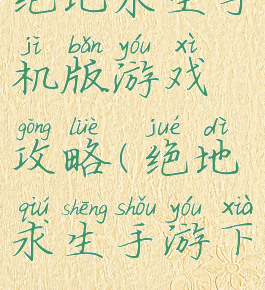 绝地求生手
jī bǎn yóu xì
机版游戏
gōng lüè jué dì
攻略(绝地
qiú shēng shǒu yóu xià
求生手游下